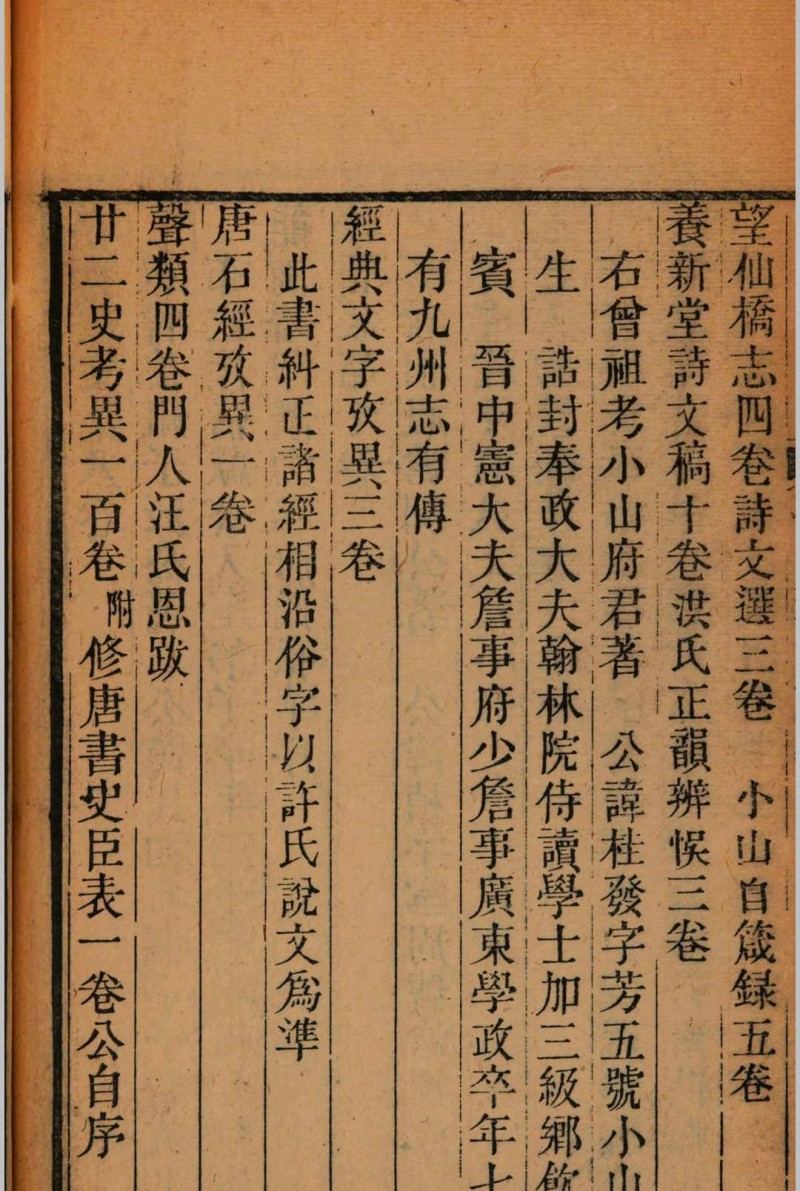 望仙橋志四卷詩文選三卷　小山自箴録五卷
養新堂詩文稿十卷洪氏正韻辨悞三卷
右曾祖考小山府君著　公諱桂發字芳五號小山
生　誥封奉政大夫翰林院侍讀學士加三級鄉飲
賓　晉中憲大夫詹事府少詹事廣東學政卒年七
有九州志有傳
經典文字攷異三卷
此書糾正諸經相沿俗字以許氏說文爲準
唐石經攷異一卷
聲類四卷門人汪氏恩跋
廿二史考異一百卷附修唐書史臣表一卷公自序